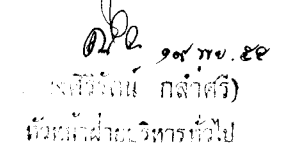 ๑๙ พย. ๕๕
ศิริรัตน์ กล่ำศรี)
หัวหน้าฝ่ายบริหารทั่วไป